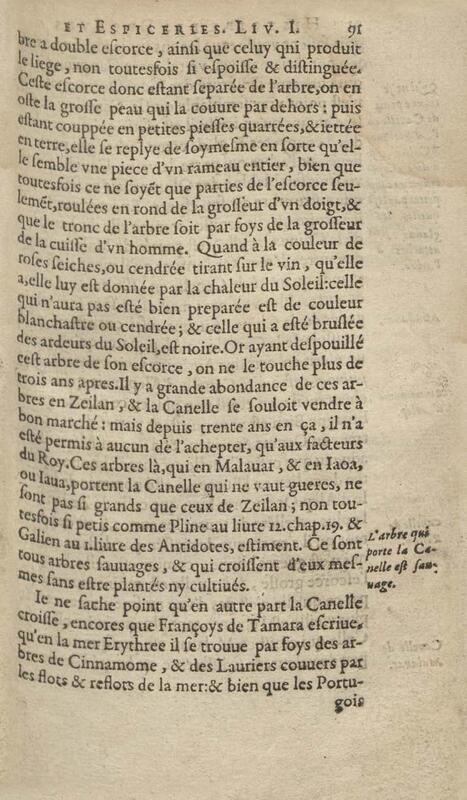 ET ESPICERIES. LIV. I. 91
bre a double eſcorce, ainſi que celuy qni produit
le liege, non toutesfois ſi eſpoiſſe & diſtinguée.
Ceſte eſcorce donc eſtant ſeparée de l'arbre,on en
oſte la groſſe peau qui la couure par dehors : puis
eſtant couppée en petites pieſſes quarrées,&iettée
en terre,elle ſe replye de ſoymeſme en ſorte qu'el-
le ſemble vne piece d'vn rameau entier, bien que
toutesfois ce ne ſoyēt que parties de l'eſcorce ſeu-
lemēt,roulées en rond de la groſſeur d'vn doigt,&
que le tronc de l'arbre ſoit par foys de la groſſeur
de la cuiſſe d'vn homme. Quand à la couleur de
roſes ſeiches,ou cendrée tirant ſur le vin, qu'elle
a,elle luy eſt donnée par la chaleur du Soleil:celle
qui n'aura pas eſté bien preparée eſt de couleur
blanchaſtre ou cendrée; & celle qui a eſté bruſlée
des ardeurs du Soleil,eſt noire.Or ayant deſpouillé
ceſt arbre de ſon eſcorce, on ne le touche plus de
trois ans apres.Il y a grande abondance de ces ar-
bres en Zeilan, & la Canelle ſe ſouloit vendre à
bon marché : mais depuis trente ans en ça, il n'a
eſté permis à aucun de l'achepter, qu'aux facteurs
du Roy.Ces arbres là,qui en Malauar, & en Iaoa,
ou Iaua,portent la Canelle qui ne vaut gueres, ne
ſont pas ſi grands que ceux de Zeilan ; non tou-
tesfois ſi petis comme Pline au liure 12.chap.19. &
Galien au 1.liure des Antidotes, eſtiment. Ce ſont
tous arbres ſauuages, & qui croiſſent d'eux meſ-
mes ſans eſtre plantés ny cultiués.
L'arbre qui
porte la Ca-
nelle eſt ſau-
uage.
Ie ne ſache point qu'en autre part la Canelle
croiſſe, encores que Françoys de Tamara eſcriue,
qu'en la mer Erythree il ſe trouue par foys des ar-
bres de Cinnamome, & des Lauriers couuers par
les flots & reflots de la mer:& bien que les Portu-
gois